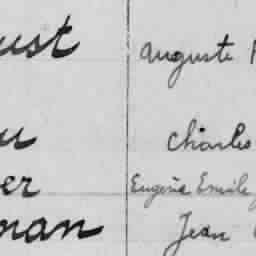 ust Auguste
u Charles
er Eugène Emile
nan Jean